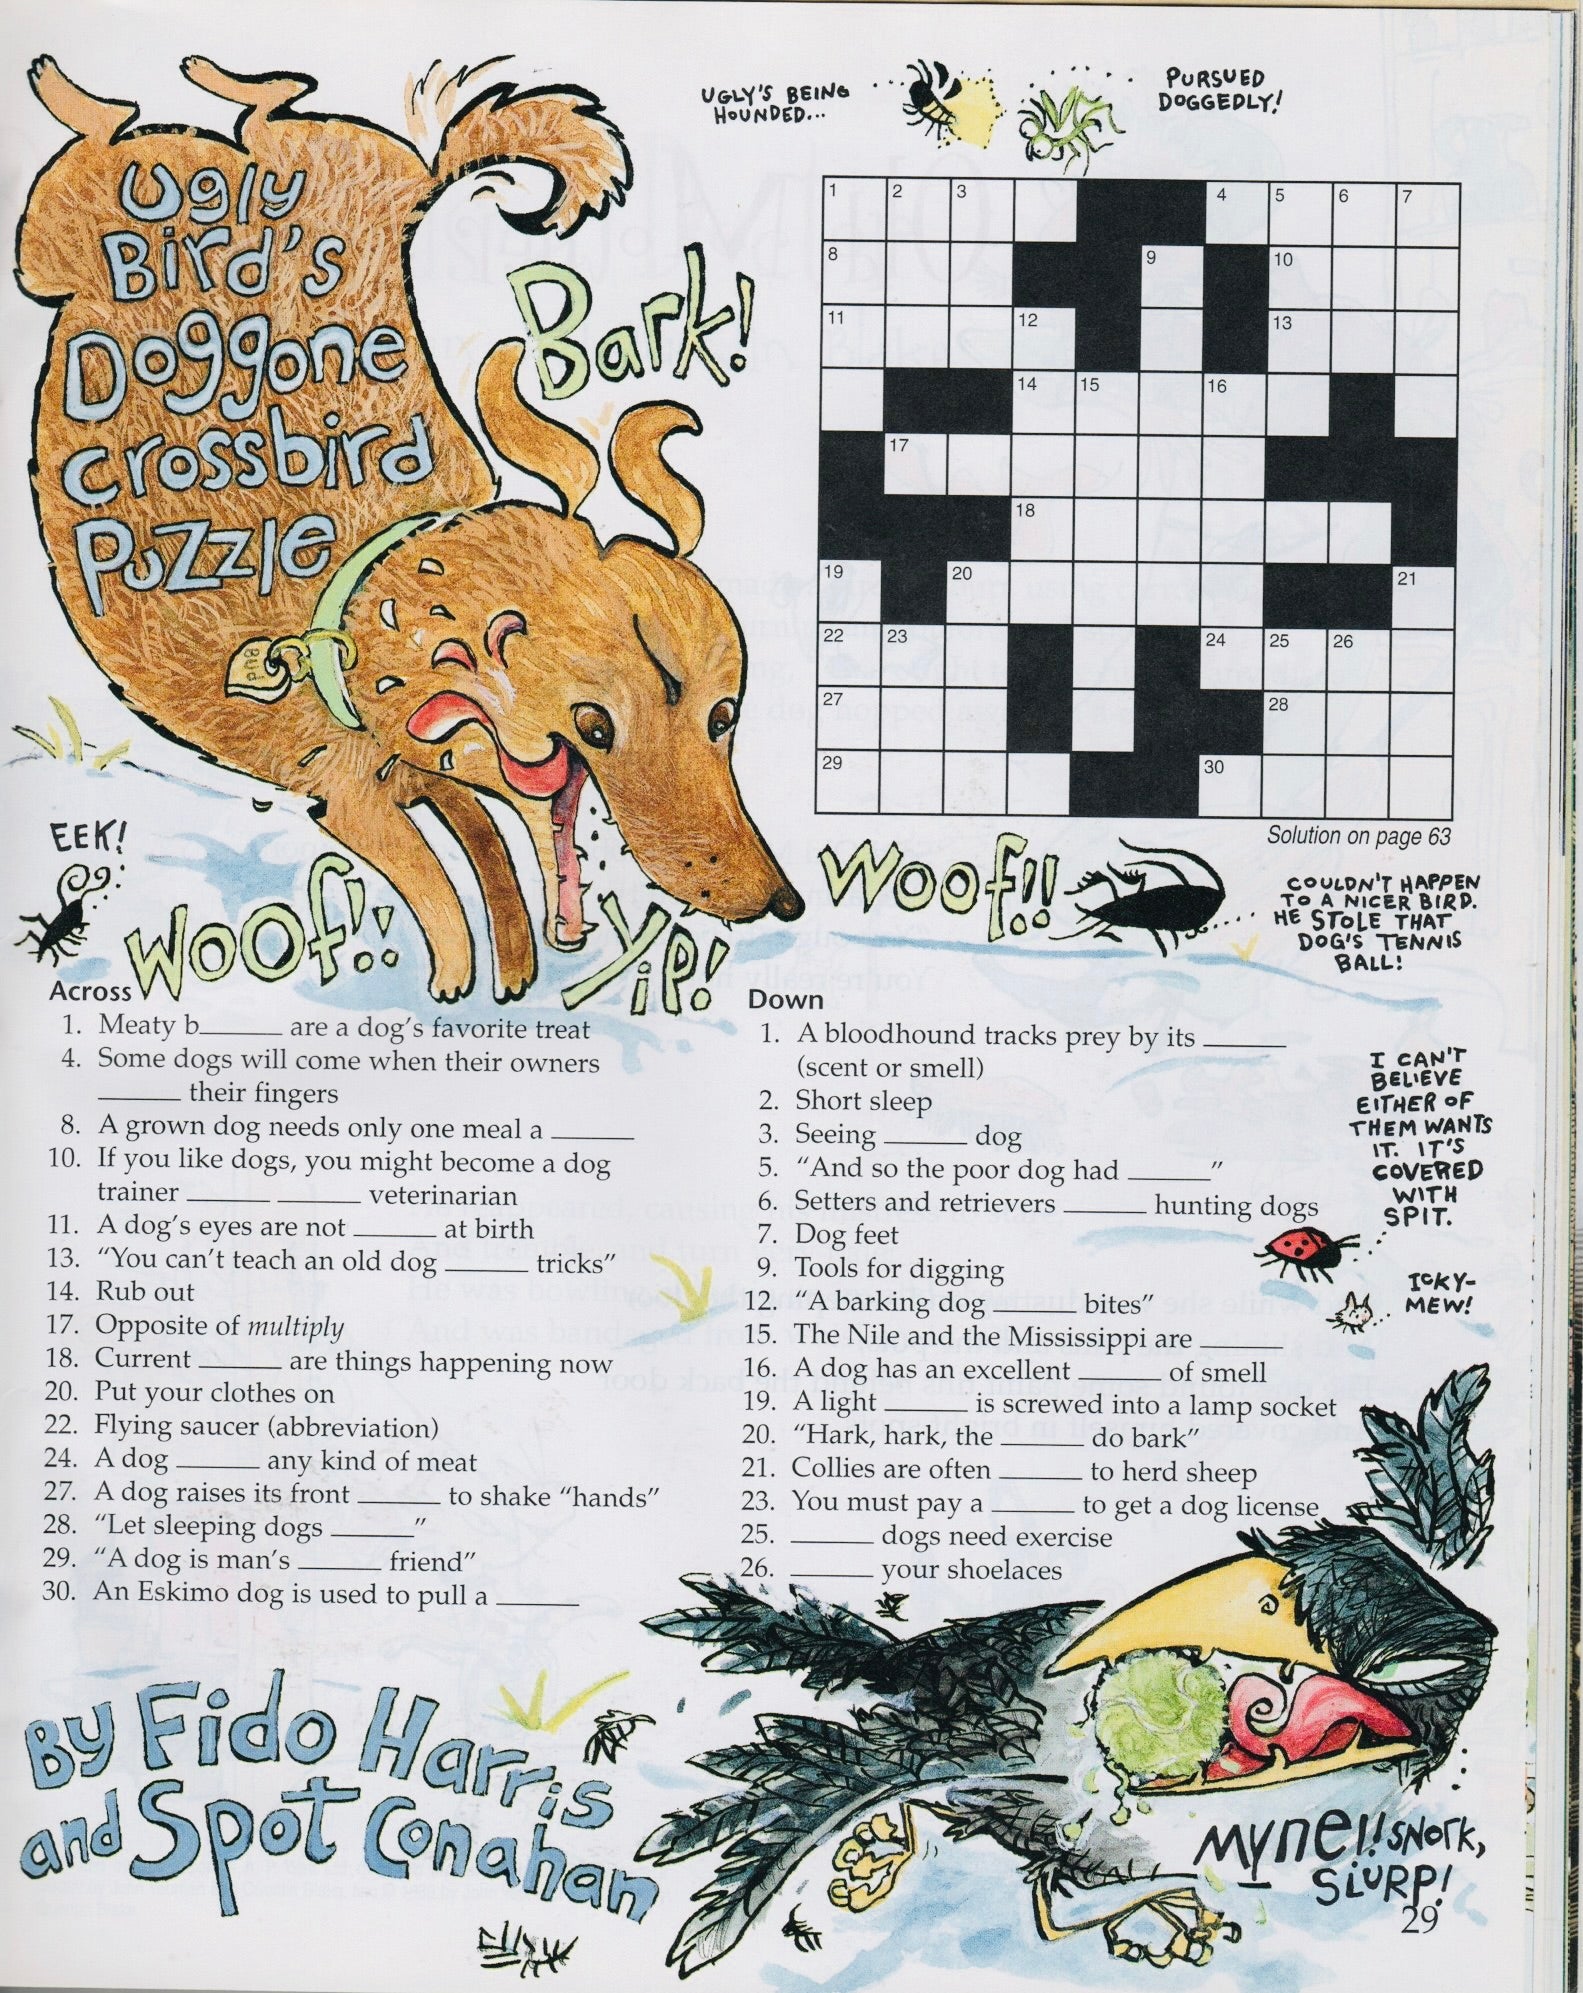 Ugly
Bird's
Doggone
crossbird
Puzzle
UGLY'S BEING
HOUNDED...
PURSUED
DOGGEDLY!
Bark!
Bud
1 2 3 4 5 6 7
8 9 10
11 12 13
14 15 16
17
18
19 20 21
22 23 24 25 26
27 28
29 30
Solution on page 63
EEK!
Woof!!
Yip!
Woof!!
COULDN'T HAPPEN
TO A NICER BIRD.
HE STOLE THAT
DOG'S TENNIS
BALL!
Across
1. Meaty b_____ are a dog's favorite treat
4. Some dogs will come when their owners
_____ their fingers
8. A grown dog needs only one meal a _____
10. If you like dogs, you might become a dog
trainer _____ _____ veterinarian
11. A dog's eyes are not _____ at birth
13. “You can't teach an old dog _____ tricks”
14. Rub out
17. Opposite of multiply
18. Current _____ are things happening now
20. Put your clothes on
22. Flying saucer (abbreviation)
24. A dog _____ any kind of meat
27. A dog raises its front _____ to shake “hands”
28. “Let sleeping dogs _____”
29. “A dog is man's _____ friend”
30. An Eskimo dog is used to pull a _____
Down
1. A bloodhound tracks prey by its _____
(scent or smell)
2. Short sleep
3. Seeing _____ dog
5. “And so the poor dog had _____”
6. Setters and retrievers _____ hunting dogs
7. Dog feet
9. Tools for digging
12. “A barking dog _____ bites”
15. The Nile and the Mississippi are _____
16. A dog has an excellent _____ of smell
19. A light _____ is screwed into a lamp socket
20. “Hark, hark, the _____ do bark”
21. Collies are often _____ to herd sheep
23. You must pay a _____ to get a dog license
25. _____ dogs need exercise
26. _____ your shoelaces
I CAN'T
BELIEVE
EITHER OF
THEM WANTS
IT. IT'S
COVERED
WITH
SPIT.
ICKY-
MEW!
By Fido Harris
and Spot Conahan
MYNE!! SNORK,
SLURP!
29